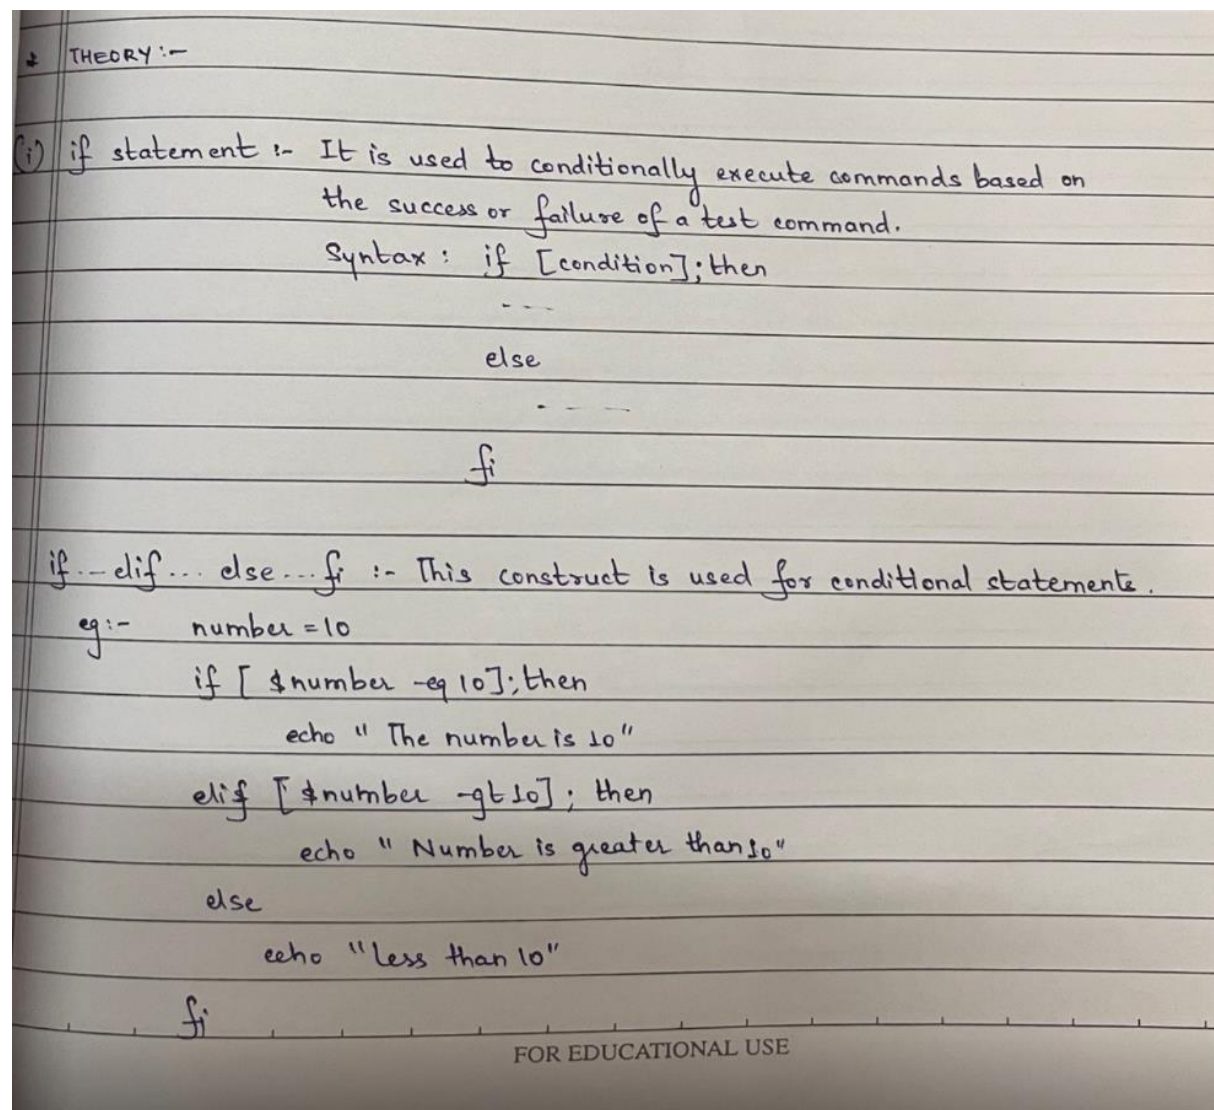 * THEORY :-
(i) if statement :- It is used to conditionally execute commands based on
the success or failure of a test command.
Syntax : if [condition]; then
- - - -
else
- - - -
fi
if --- elif ... else ... fi :- This construct is used for conditional statements.
eg :- number = 10
if [ $number -eq 10]; then
echo " The number is 10"
elif [ $number -gt 10] ; then
echo " Number is greater than 10"
else
echo "less than 10"
fi
FOR EDUCATIONAL USE